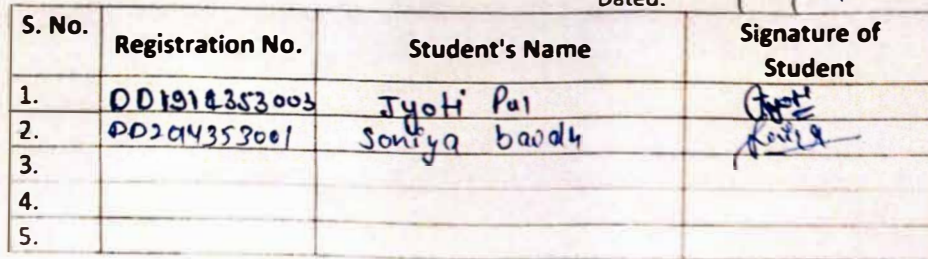 Dated:
S. No. Registration No. Student's Name Signature of Student
1. DD1914353003 Jyoti Pal Jyoti
2. Soniya
3.
4.
5.